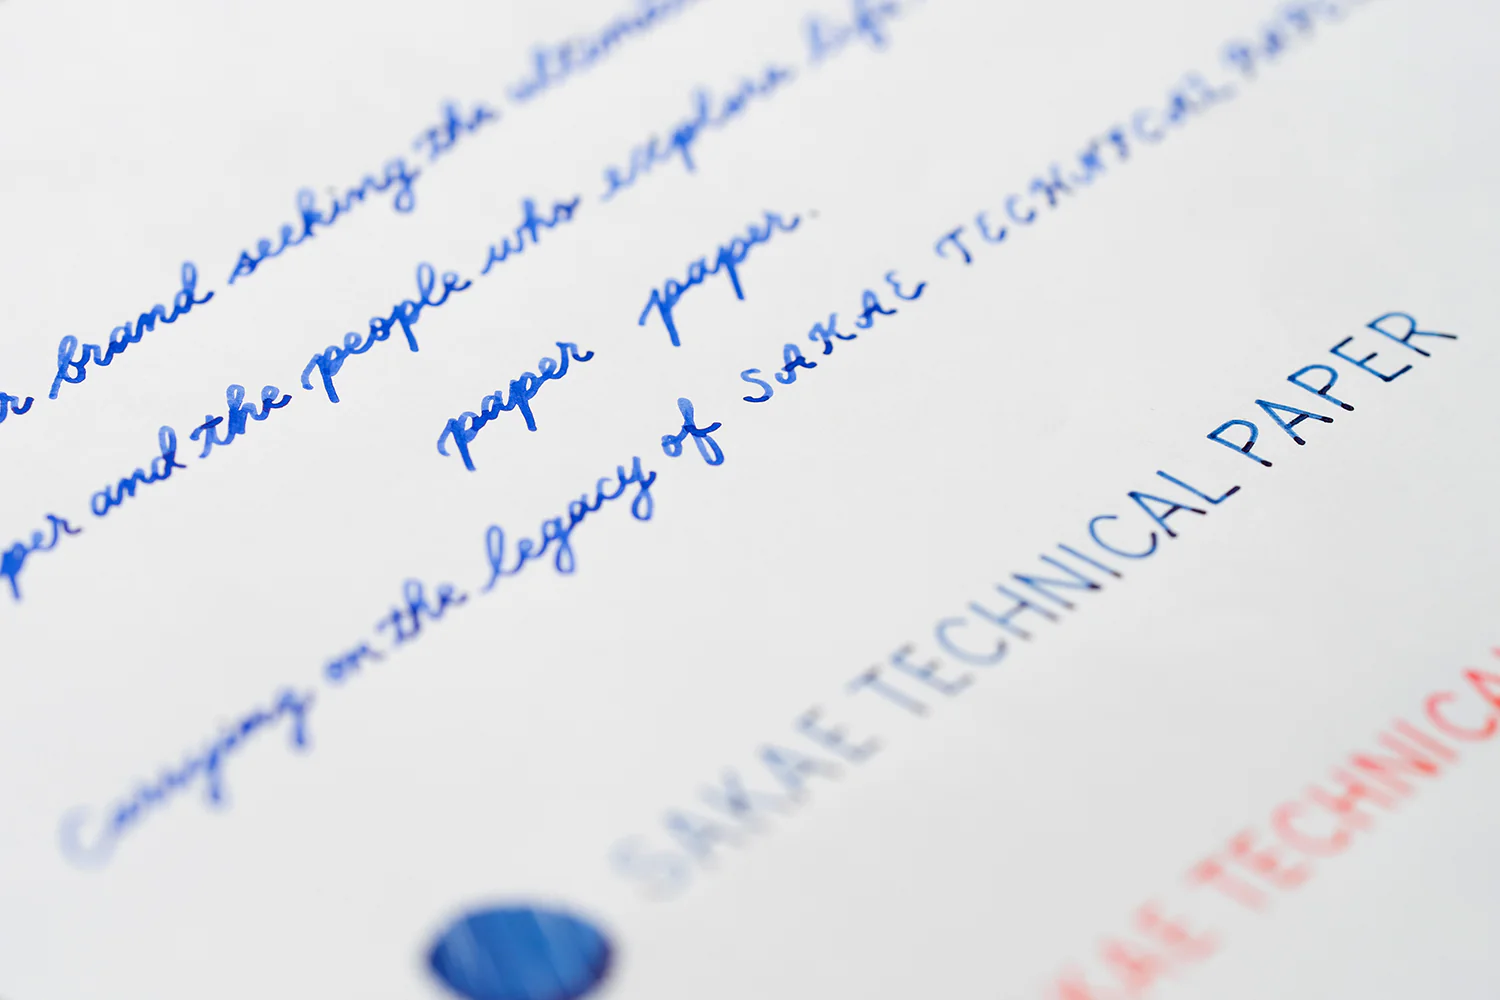 brand seeking the
per and the people who explore life
paper paper.
Carrying on the legacy of SAKAE TECHNICAL PAPER
SAKAE TECHNICAL PAPER
KAE TECHNICA